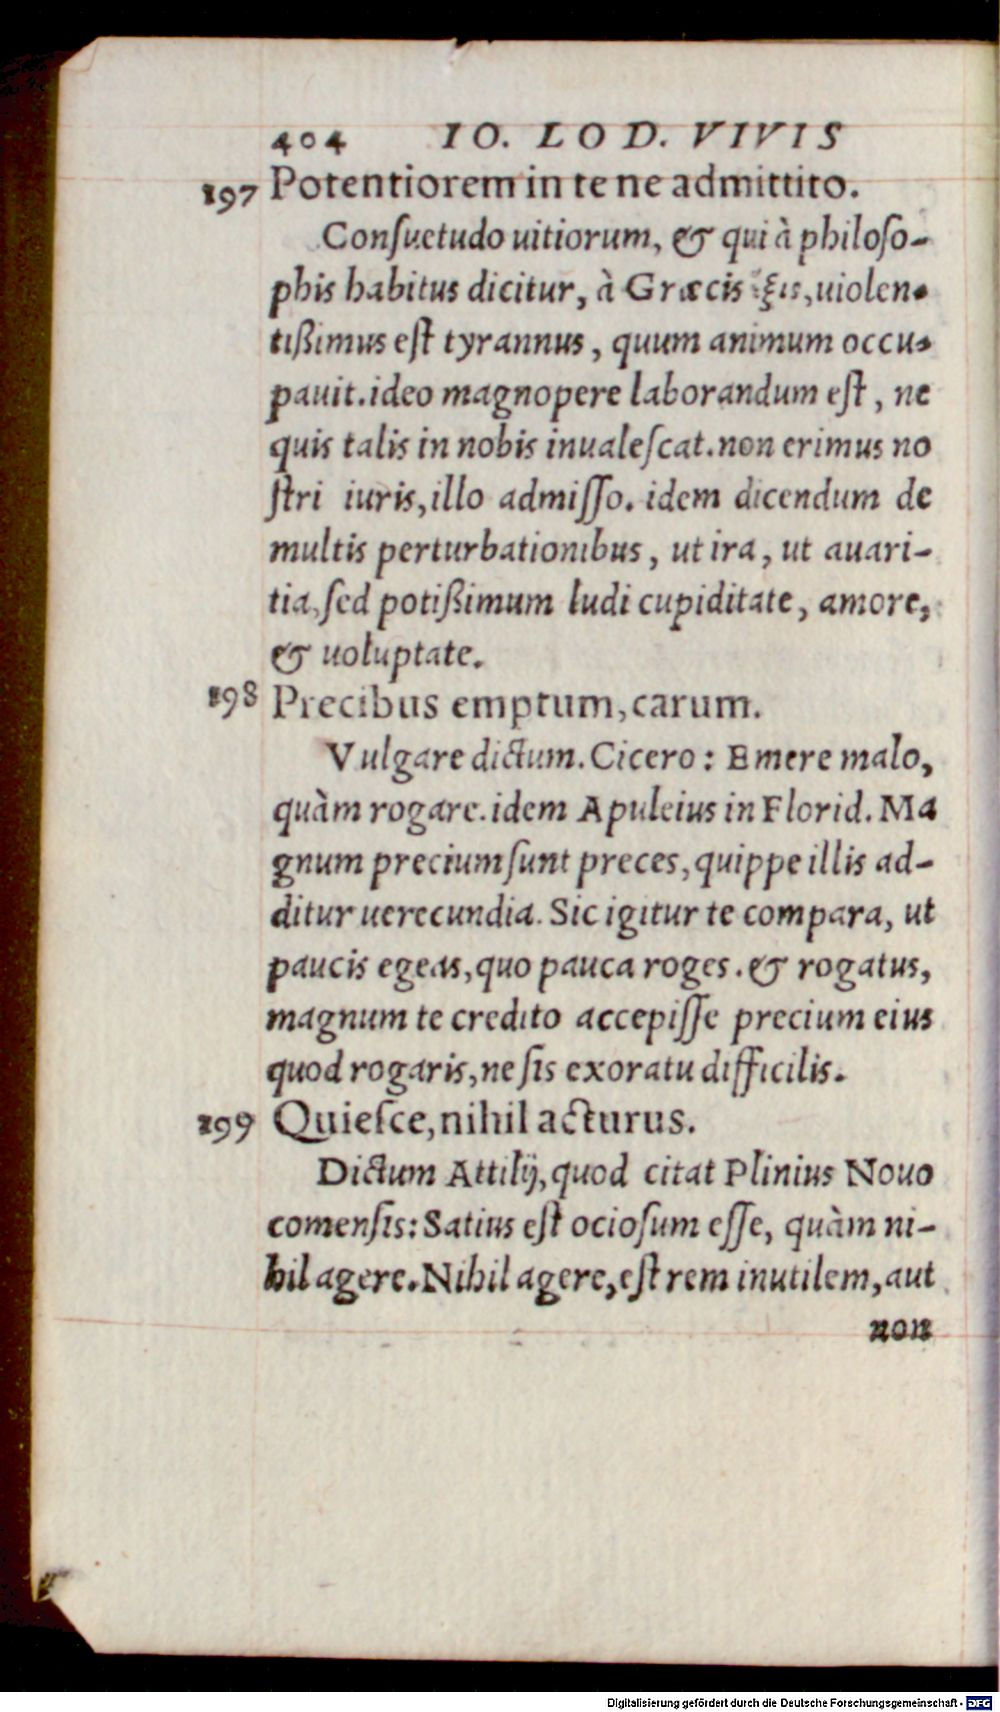 404 IO. LOD. VIVIS
197 Potentiorem in te ne admittito.
Conſuetudo uitiorum, & qui à philoſo-
phis habitus dicitur, à Græcis ἕξις, uiolen-
tißimus eſt tyrannus, quum animum occu-
pauit. ideo magnopere laborandum eſt, ne
quis talis in nobis inualeſcat. non erimus no
ſtri iuris, illo admiſſo. idem dicendum de
multis perturbationibus, ut ira, ut auari-
tia, ſed potißimum ludi cupiditate, amore,
& uoluptate.
198 Precibus emptum, carum.
Vulgare dictum. Cicero: Emere malo,
quàm rogare. idem Apuleius in Florid. Ma
gnum precium ſunt preces, quippe illis ad-
ditur uerecundia. Sic igitur te compara, ut
paucis egeas, quo pauca roges. & rogatus,
magnum te credito accepiſſe precium eius
quod rogaris, ne ſis exoratu difficilis.
199 Quieſce, nihil acturus.
Dictum Attilij, quod citat Plinius Nouo
comenſis: Satius eſt ocioſum eſſe, quàm ni-
hil agere. Nihil agere, eſt rem inutilem, aut
non
Digitalisierung gefördert durch die Deutsche Forschungsgemeinschaft - DFG